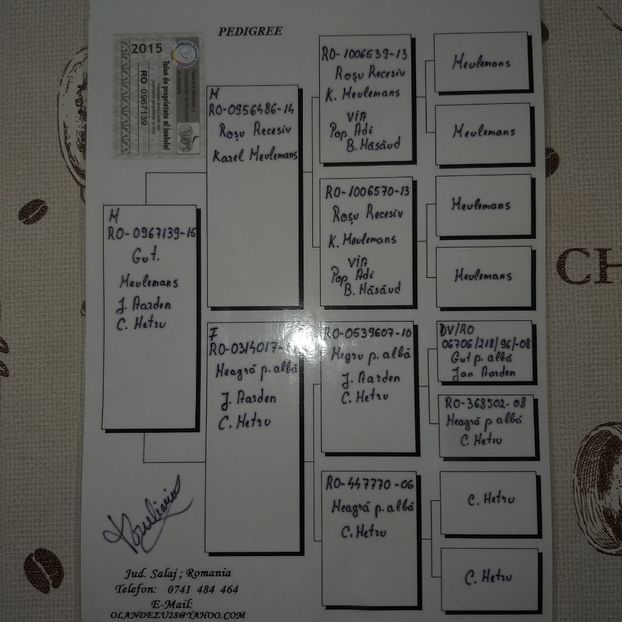 PEDIGREE
2015
Talon de proprietate al inelului
RO 0967139
M
RO-0967139-15
Gut.
Meulemans
J. Aarden
C. Hetru
M
RO-0956486-14
Roșu Recesiv
Karel Meulemans
F
RO-0314017-
Neagră p.albă
J. Aarden
C. Hetru
RO-1006539-13
Roșu Recesiv
K. Meulemans
VIA
Pop Adi
B. Năsăud
RO-1006570-13
Roșu Recesiv
K. Meulemans
VIA
Pop Adi
B. Năsăud
RO-0539607-10
Negru p.albă
J. Aarden
C. Hetru
RO-447770-06
Neagră p.albă
C. Hetru
Meulemans
Meulemans
Meulemans
Meulemans
DV/RO
06706/218/96/-08
Gut p. albă
Jan Aarden
RO-368502-08
Neagră p albă
C. Hetru
C. Hetru
C. Hetru
Jud. Salaj ; Romania
Telefon: 0741 484 464
E-Mail:
OLANDEZU28@YAHOO.COM
CH